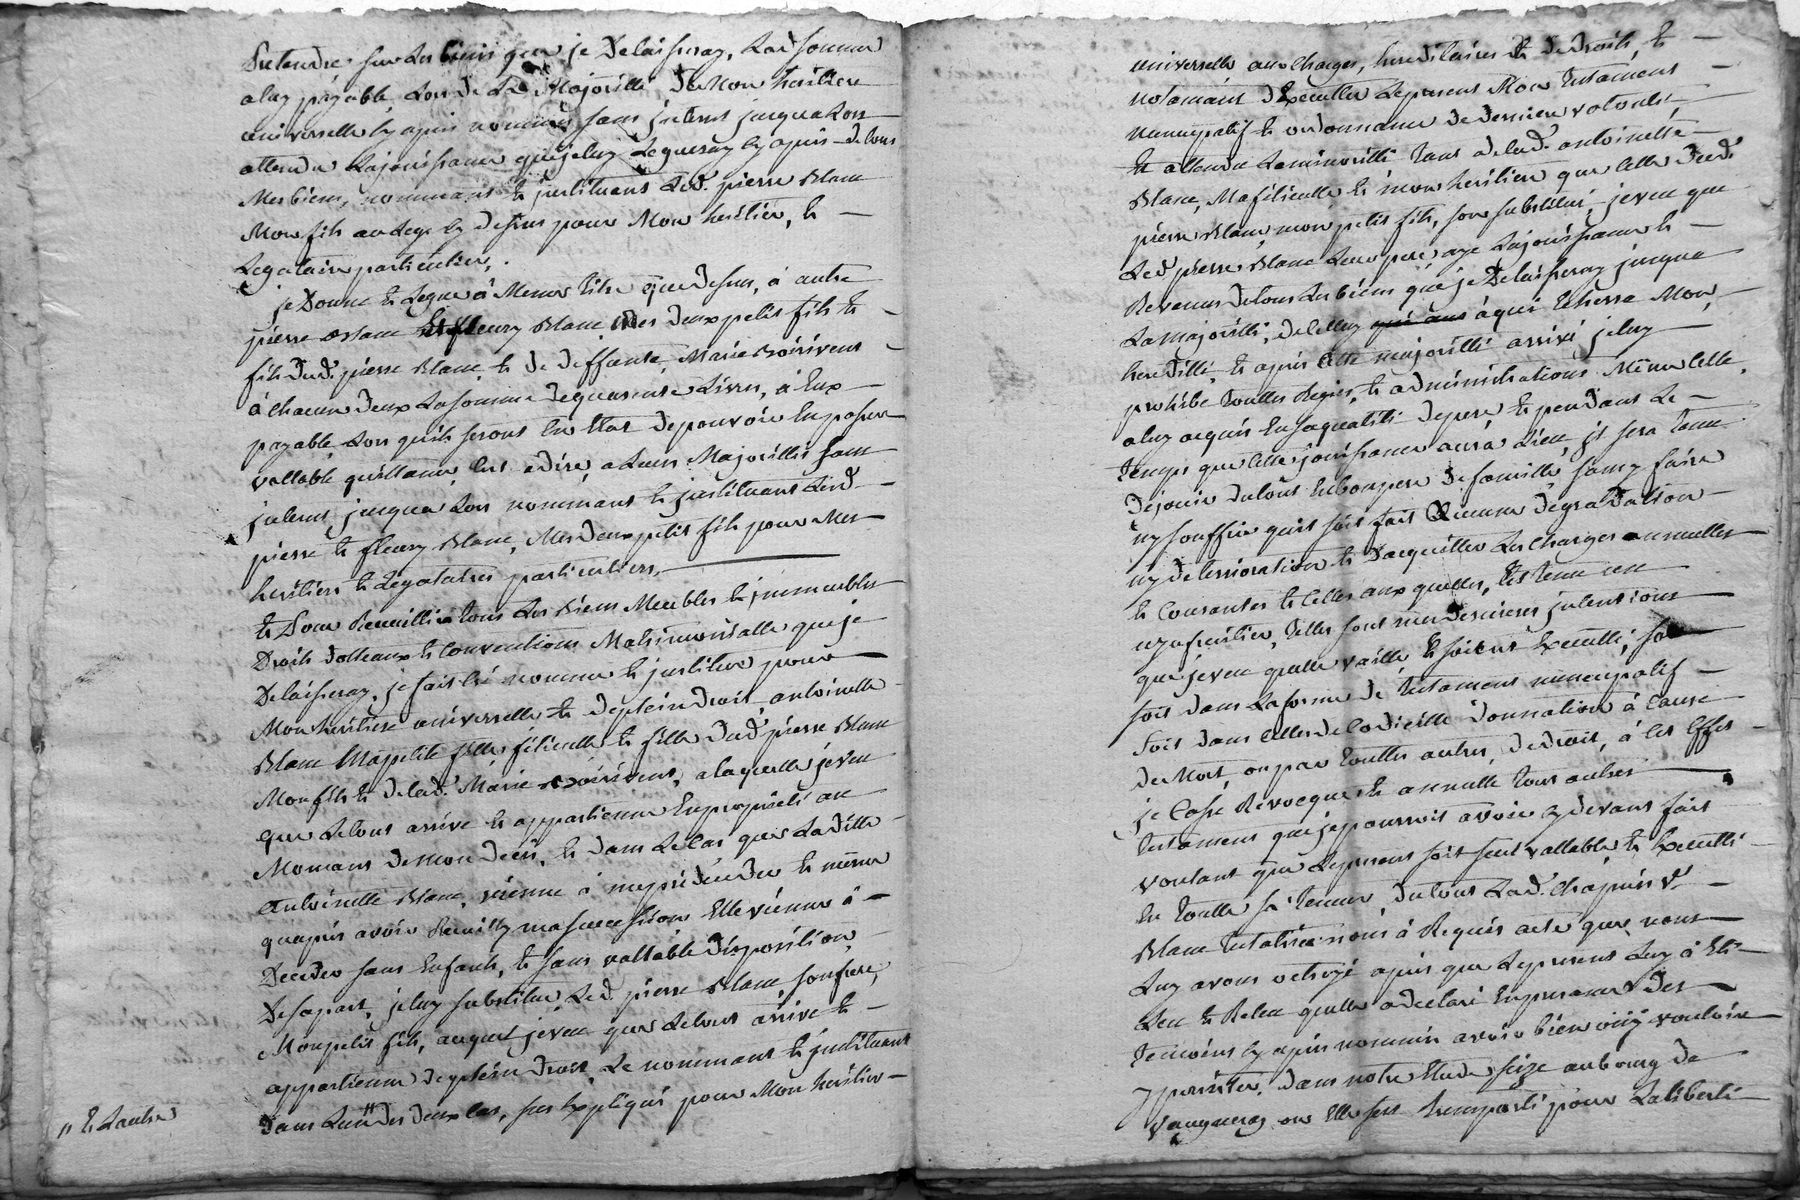 pretendre sur les biens que je Delaisseray, Lad. somme
a luy payable, Lors de La Majoritté De Mon heritiere
universelle cy apres nommée sans jnterest jusqua Lors
attendu La jouissance que je luy Legueray cy apres de tous
Mes biens, nommant & jnstituant Led. pierre Blanc
Mon fils au Legs cy dessus pour Mon heritier, &
Legataire particulier.
je Donne & Legue à Meme titre que dessus, à autre
pierre Blanc Et fleury Blanc Mes deux petits fils &
fils Dud. pierre Blanc, & de deffunte, Marie Boirivent
à chacun Deux La somme de quarente Livres, à Eux
payable Lors quils seront En Etat De pouvoir En passer
vallable quittance, Cest adire, a Leurs Majorittés sans
jnterest jusqua Lors nommant & jnstituant Lesd.
pierre & fleury Blanc, Mes deux petits fils pour Mes
heritiers & Legataires particuliers.
& Pour Recueillir tous Les Biens Meubles & jmmeubles
Droits Dotteaux & Conventions Matrimonialle que je
Delaisseray, je fait & nomme & jnstitue pour
Mon heritiere universelle & de plein Droit, antoinette
Blanc Ma petite fille, fillieulle & fille Dud. pierre Blanc
Mon fils & De lad. Marie Boirivent, a laquelle je veu
que Le tout arrive & appartienne En propriété au
Momant De mon Décès, & Dans Le Cas que Laditte
Antoinette Blanc, vienne à me prédécéder & même
quapres avoir Reccuilly ma succession Elle vienne à
Deceder sans Enfants, & sans vallable disposition
De sa part, je luy substitue Led. pierre Blanc, son frere,
Mon petit fils, auquel je veu que Le tout arrive &
appartienne De plein Droit, Le nommant & jnstituant
Dans Lun " Des deux Cas, sus Expliqués pour Mon heritier
" & Lautre
universelle aux charges, hereditaires & de droits, &
notament D'Executter Le present Mon Testament
nuncupatif & ordonnance De derniere volonté
& attendu La minoritté tant De lad. antoinette
Blanc, Ma fillieulle & mon heritiere que Celle Dud.
pierre Blanc mon petit fils, son substitué, je veu que
Led. pierre Blanc Leur pere aye La jouissance &
Revenus De tous Les biens que je Delaisseray jusqua
La majoritté, De Celluy à qui Echerra Mon
heredité, & apres Cette majoritté arrivé je luy
prohibe Touttes Regies, & administrations Même Celle,
a luy acquis En saqualité De pere & pendant Le
temps que Cette jouissance aura Lieu, jl sera tenu
De jouir du tout En bon pere De famille, sans y faire
ny souffrir quil soit fait aucune Degradation
ny Deterrioration & D'acquitter Les Charges annuelles
& Courantes & Celles aux quelles, Est tenu un
uzufruitier, Telles sont mes dernieres jntentions
que je veu quelle vaille & soit Executté, soit
soit Dans La forme De testament nuncupatif
soit Dans Celles De Codicille Donnation à Cause
De Mort, ou par Touttes autres, De droit, à Ces Effets
je Casse Revocque & annulle tous autres
testament que je pourrois avoir cy devant fait
voulant que Le present soit seul vallable & Executté
En Toutte sa teneur, Du tout Lad. Chapuis Ve.
Blanc testatrice nous à Requis acte que nous
Luy avons octroyé apres que Le present Luy à Eté
Leu & Releu quelle adeclaré En presence Des
Temoins cy apres nommés avoir bien ouïy vouloir
y persister. Dans notre Etude sise au bourg De
vaugneray ou Elle sest transporté pour La liberté